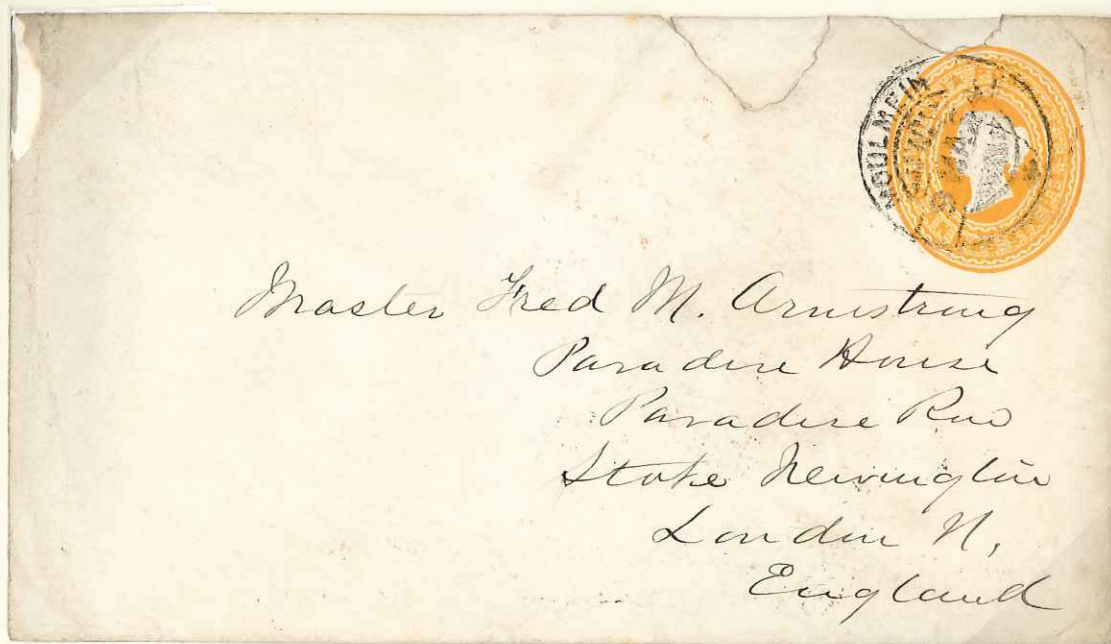 MOULMEIN
Master Fred M. Armstrong
Paradise House
Paradise Row
Stoke Newington
London N.
England